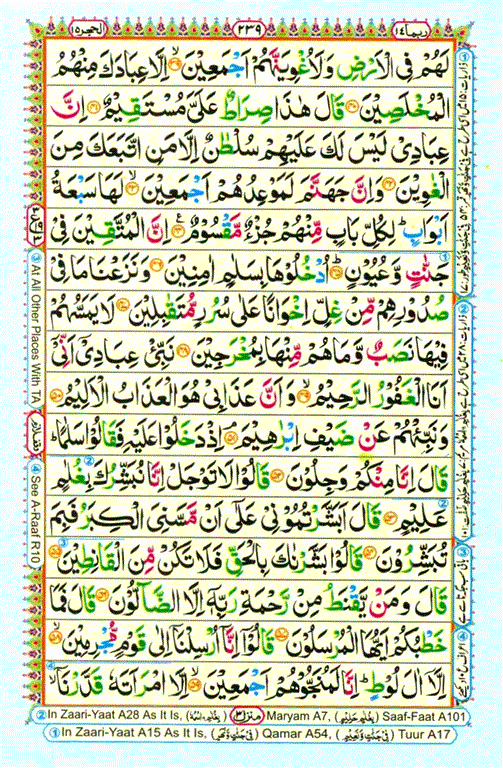 ربما ١٤
٢٣٩
الحجر ١٥
لَهُمْ فِى الْاَرْضِ وَلَاُغْوِيَنَّهُمْ اَجْمَعِيْنَ ۙ﴿٣٩﴾ اِلَّا عِبَادَكَ مِنْهُمُ
الْمُخْلَصِيْنَ ﴿٤٠﴾ قَالَ هٰذَا صِرَاطٌ عَلَىَّ مُسْتَقِيْمٌ ﴿٤١﴾ اِنَّ
عِبَادِىْ لَيْسَ لَكَ عَلَيْهِمْ سُلْطٰنٌ اِلَّا مَنِ اتَّبَعَكَ مِنَ
الْغٰوِيْنَ ﴿٤٢﴾ وَاِنَّ جَهَنَّمَ لَمَوْعِدُهُمْ اَجْمَعِيْنَ ۙ﴿٤٣﴾ لَهَا سَبْعَةُ
اَبْوَابٍ ؕ لِكُلِّ بَابٍ مِّنْهُمْ جُزْءٌ مَّقْسُوْمٌ ﴿٤٤﴾ اِنَّ الْمُتَّقِيْنَ فِىْ
جَنّٰتٍ وَّعُيُوْنٍ ؕ﴿٤٥﴾ اُدْخُلُوْهَا بِسَلٰمٍ اٰمِنِيْنَ ﴿٤٦﴾ وَنَزَعْنَا مَا فِىْ
صُدُوْرِهِمْ مِّنْ غِلٍّ اِخْوَانًا عَلٰى سُرُرٍ مُّتَقٰبِلِيْنَ ﴿٤٧﴾ لَا يَمَسُّهُمْ
فِيْهَا نَصَبٌ وَّمَا هُمْ مِّنْهَا بِمُخْرَجِيْنَ ﴿٤٨﴾ نَبِّئْ عِبَادِىْۤ اَنِّىْۤ
اَنَا الْغَفُوْرُ الرَّحِيْمُ ۙ﴿٤٩﴾ وَاَنَّ عَذَابِىْ هُوَ الْعَذَابُ الْاَلِيْمُ ﴿٥٠﴾
وَنَبِّئْهُمْ عَنْ ضَيْفِ اِبْرٰهِيْمَ ۘ﴿٥١﴾ اِذْ دَخَلُوْا عَلَيْهِ فَقَالُوْا سَلٰمًا ؕ
قَالَ اِنَّا مِنْكُمْ وَجِلُوْنَ ﴿٥٢﴾ قَالُوْا لَا تَوْجَلْ اِنَّا نُبَشِّرُكَ بِغُلٰمٍ
عَلِيْمٍ ﴿٥٣﴾ قَالَ اَبَشَّرْتُمُوْنِىْ عَلٰٓى اَنْ مَّسَّنِىَ الْكِبَرُ فَبِمَ
تُبَشِّرُوْنَ ﴿٥٤﴾ قَالُوْا بَشَّرْنٰكَ بِالْحَقِّ فَلَا تَكُنْ مِّنَ الْقٰنِطِيْنَ ﴿٥٥﴾
قَالَ وَمَنْ يَّقْنَطُ مِنْ رَّحْمَةِ رَبِّهٖۤ اِلَّا الضَّآلُّوْنَ ﴿٥٦﴾ قَالَ فَمَا
خَطْبُكُمْ اَيُّهَا الْمُرْسَلُوْنَ ﴿٥٧﴾ قَالُوْۤا اِنَّاۤ اُرْسِلْنَاۤ اِلٰى قَوْمٍ مُّجْرِمِيْنَ ۙ﴿٥٨﴾
اِلَّاۤ اٰلَ لُوْطٍ ؕ اِنَّا لَمُنَجُّوْهُمْ اَجْمَعِيْنَ ۙ﴿٥٩﴾ اِلَّا امْرَاَتَهٗ قَدَّرْنَاۤ ۙ
③ At All Other Places With TA
④ See A-Raaf R10
② In Zaari-Yaat A28 As It Is, Maryam A7, Saaf-Faat A101
منزل ٣
① In Zaari-Yaat A15 As It Is, Qamar A54, Tuur A17